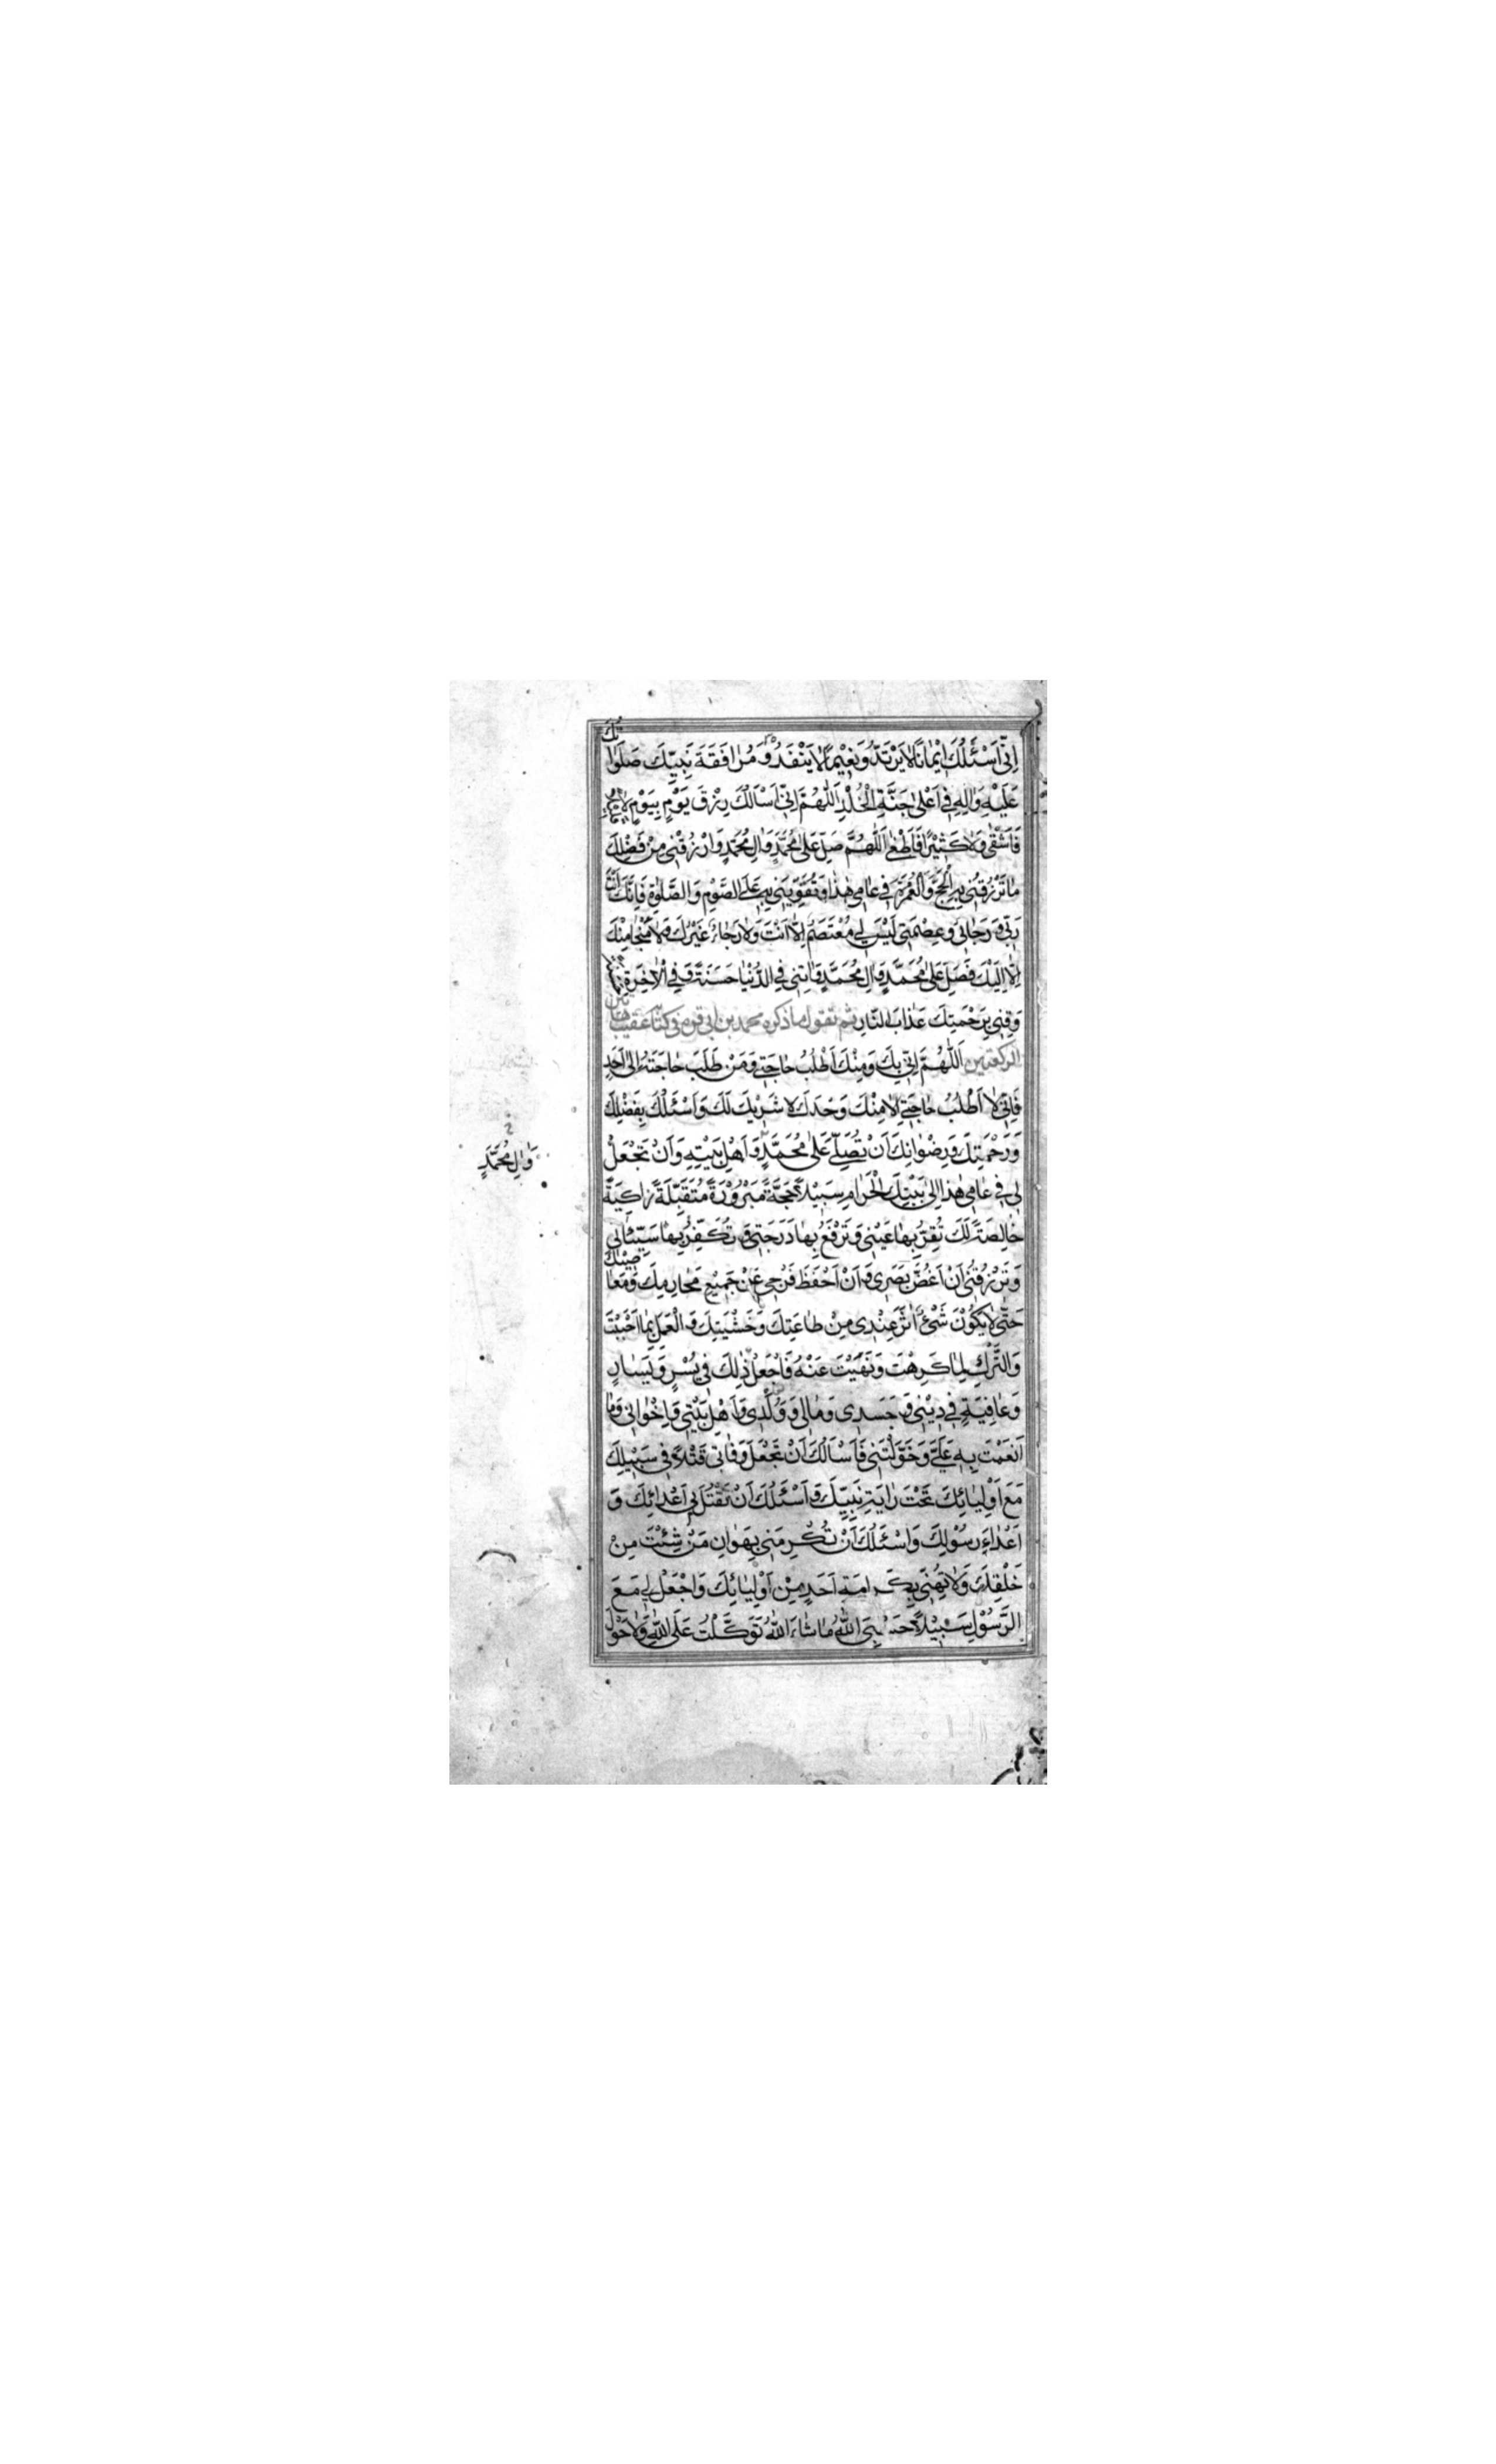 اِنّی اَسْئَلُكَ اِیْمٰانًا لٰا یَرْتَدُّ وَ نَعِیْمًا لٰا یَنْفَدُ وَ مُرٰافَقَةَ نَبِیِّكَ صَلَوٰاتُكَ
عَلَیْهِ وَ اٰلِهِ فِی اَعْلیٰ جَنَّةِ الْخُلْدِ اَللّٰهُمَّ اِنّی اَسْأَلُكَ رِزْقَ یَوْمٍ بِیَوْمٍ لٰا
فَاَشْقٰی وَلٰا كَثِیْرًا فَاَطْغٰی اَللّٰهُمَّ صَلِّ عَلیٰ مُحَمَّدٍ وَ اٰلِ مُحَمَّدٍ وَ ارْزُقْنِی مِنْ فَضْلِكَ
مٰا تَرْزُقُنِی بِهِ الْحَجَّ وَ الْعُمْرَةَ فِی عٰامِی هٰذٰا وَ تُقَوِّیَنِی بِهِ عَلَی الصَّوْمِ وَ الصَّلٰوةِ فَاِنَّكَ اَنْتَ
رَبِّی وَ رَجٰائِی وَ عِصْمَتِی لَیْسَ لِی مُعْتَصَمٌ اِلّٰا اَنْتَ وَ لٰا رَجٰاءَ غَیْرُكَ وَ لٰا مَنْجٰا مِنْكَ
اِلّٰا اِلَیْكَ فَصَلِّ عَلیٰ مُحَمَّدٍ وَ اٰلِ مُحَمَّدٍ وَ اٰتِنِی فِی الدُّنْیٰا حَسَنَةً وَ فِی الْاٰخِرَةِ حَسَنَةً
وَ قِنِی بِرَحْمَتِكَ عَذٰابَ النّٰارِ ثم تقول ما ذكره محمد بن ابی قره فی كتابه عقیب هاتین
الركعتین اَللّٰهُمَّ اِنّی بِكَ وَ مِنْكَ اَطْلُبُ حٰاجَتِی وَ مَنْ طَلَبَ حٰاجَتَهُ اِلیٰ اَحَدٍ
فَاِنّی لٰا اَطْلُبُ حٰاجَتِی اِلّٰا مِنْكَ وَحْدَكَ لٰا شَرِیْكَ لَكَ وَ اَسْئَلُكَ بِفَضْلِكَ
وَ رَحْمَتِكَ وَ رِضْوٰانِكَ اَنْ تُصَلِّیَ عَلیٰ مُحَمَّدٍ وَ اَهْلِ بَیْتِهِ وَ اَنْ تَجْعَلَ
وَ اٰلِ مُحَمَّدٍ
لِی فِی عٰامِی هٰذٰا اِلیٰ بَیْتِكَ الْحَرٰامِ سَبِیْلًا حَجَّةً مَبْرُوْرَةً مُتَقَبَّلَةً زٰاكِیَةً
خٰالِصَةً لَكَ تُقِرُّ بِهٰا عَیْنِی وَ تَرْفَعُ بِهٰا دَرَجَتِی وَ تُكَفِّرُ بِهٰا سَیِّئٰاتِی
وَ تَرْزُقَنِی اَنْ اَغُضَّ بَصَرِی وَ اَنْ اَحْفَظَ فَرْجِی عَنْ جَمِیْعِ مَحٰارِمِكَ وَ مَعٰاصِیْكَ
حَتّٰی لٰا یَكُوْنَ شَیْءٌ اٰثَرَ عِنْدِی مِنْ طٰاعَتِكَ وَ خَشْیَتِكَ وَ الْعَمَلِ بِمٰا اَحْبَبْتَ
وَ التَّرْكِ لِمٰا كَرِهْتَ وَ نَهَیْتَ عَنْهُ وَ اجْعَلْ ذٰلِكَ فِی یُسْرٍ وَ یَسٰارٍ
وَ عٰافِیَةٍ فِی دِیْنِی وَ جَسَدِی وَ مٰالِی وَ وَلَدِی وَ اَهْلِ بَیْتِی وَ اِخْوٰانِی وَ مٰا
اَنْعَمْتَ بِهِ عَلَیَّ وَ خَوَّلْتَنِی فَاَسْأَلُكَ اَنْ تَجْعَلَ وَفٰاتِی قَتْلًا فِی سَبِیْلِكَ
مَعَ اَوْلِیٰائِكَ تَحْتَ رٰایَةِ نَبِیِّكَ وَ اَسْئَلُكَ اَنْ تَقْتُلَ بِی اَعْدٰائَكَ وَ
اَعْدٰاءَ رَسُوْلِكَ وَ اَسْئَلُكَ اَنْ تُكْرِمَنِی بِهَوٰانِ مَنْ شِئْتَ مِنْ
خَلْقِكَ وَ لٰا تُهِنِّی بِكَرٰامَةِ اَحَدٍ مِنْ اَوْلِیٰائِكَ وَ اجْعَلْ لِی مَعَ
الرَّسُوْلِ سَبِیْلًا حَسْبِیَ اللّٰهُ مٰا شٰاءَ اللّٰهُ تَوَكَّلْتُ عَلَی اللّٰهِ وَ لٰا حَوْلَ